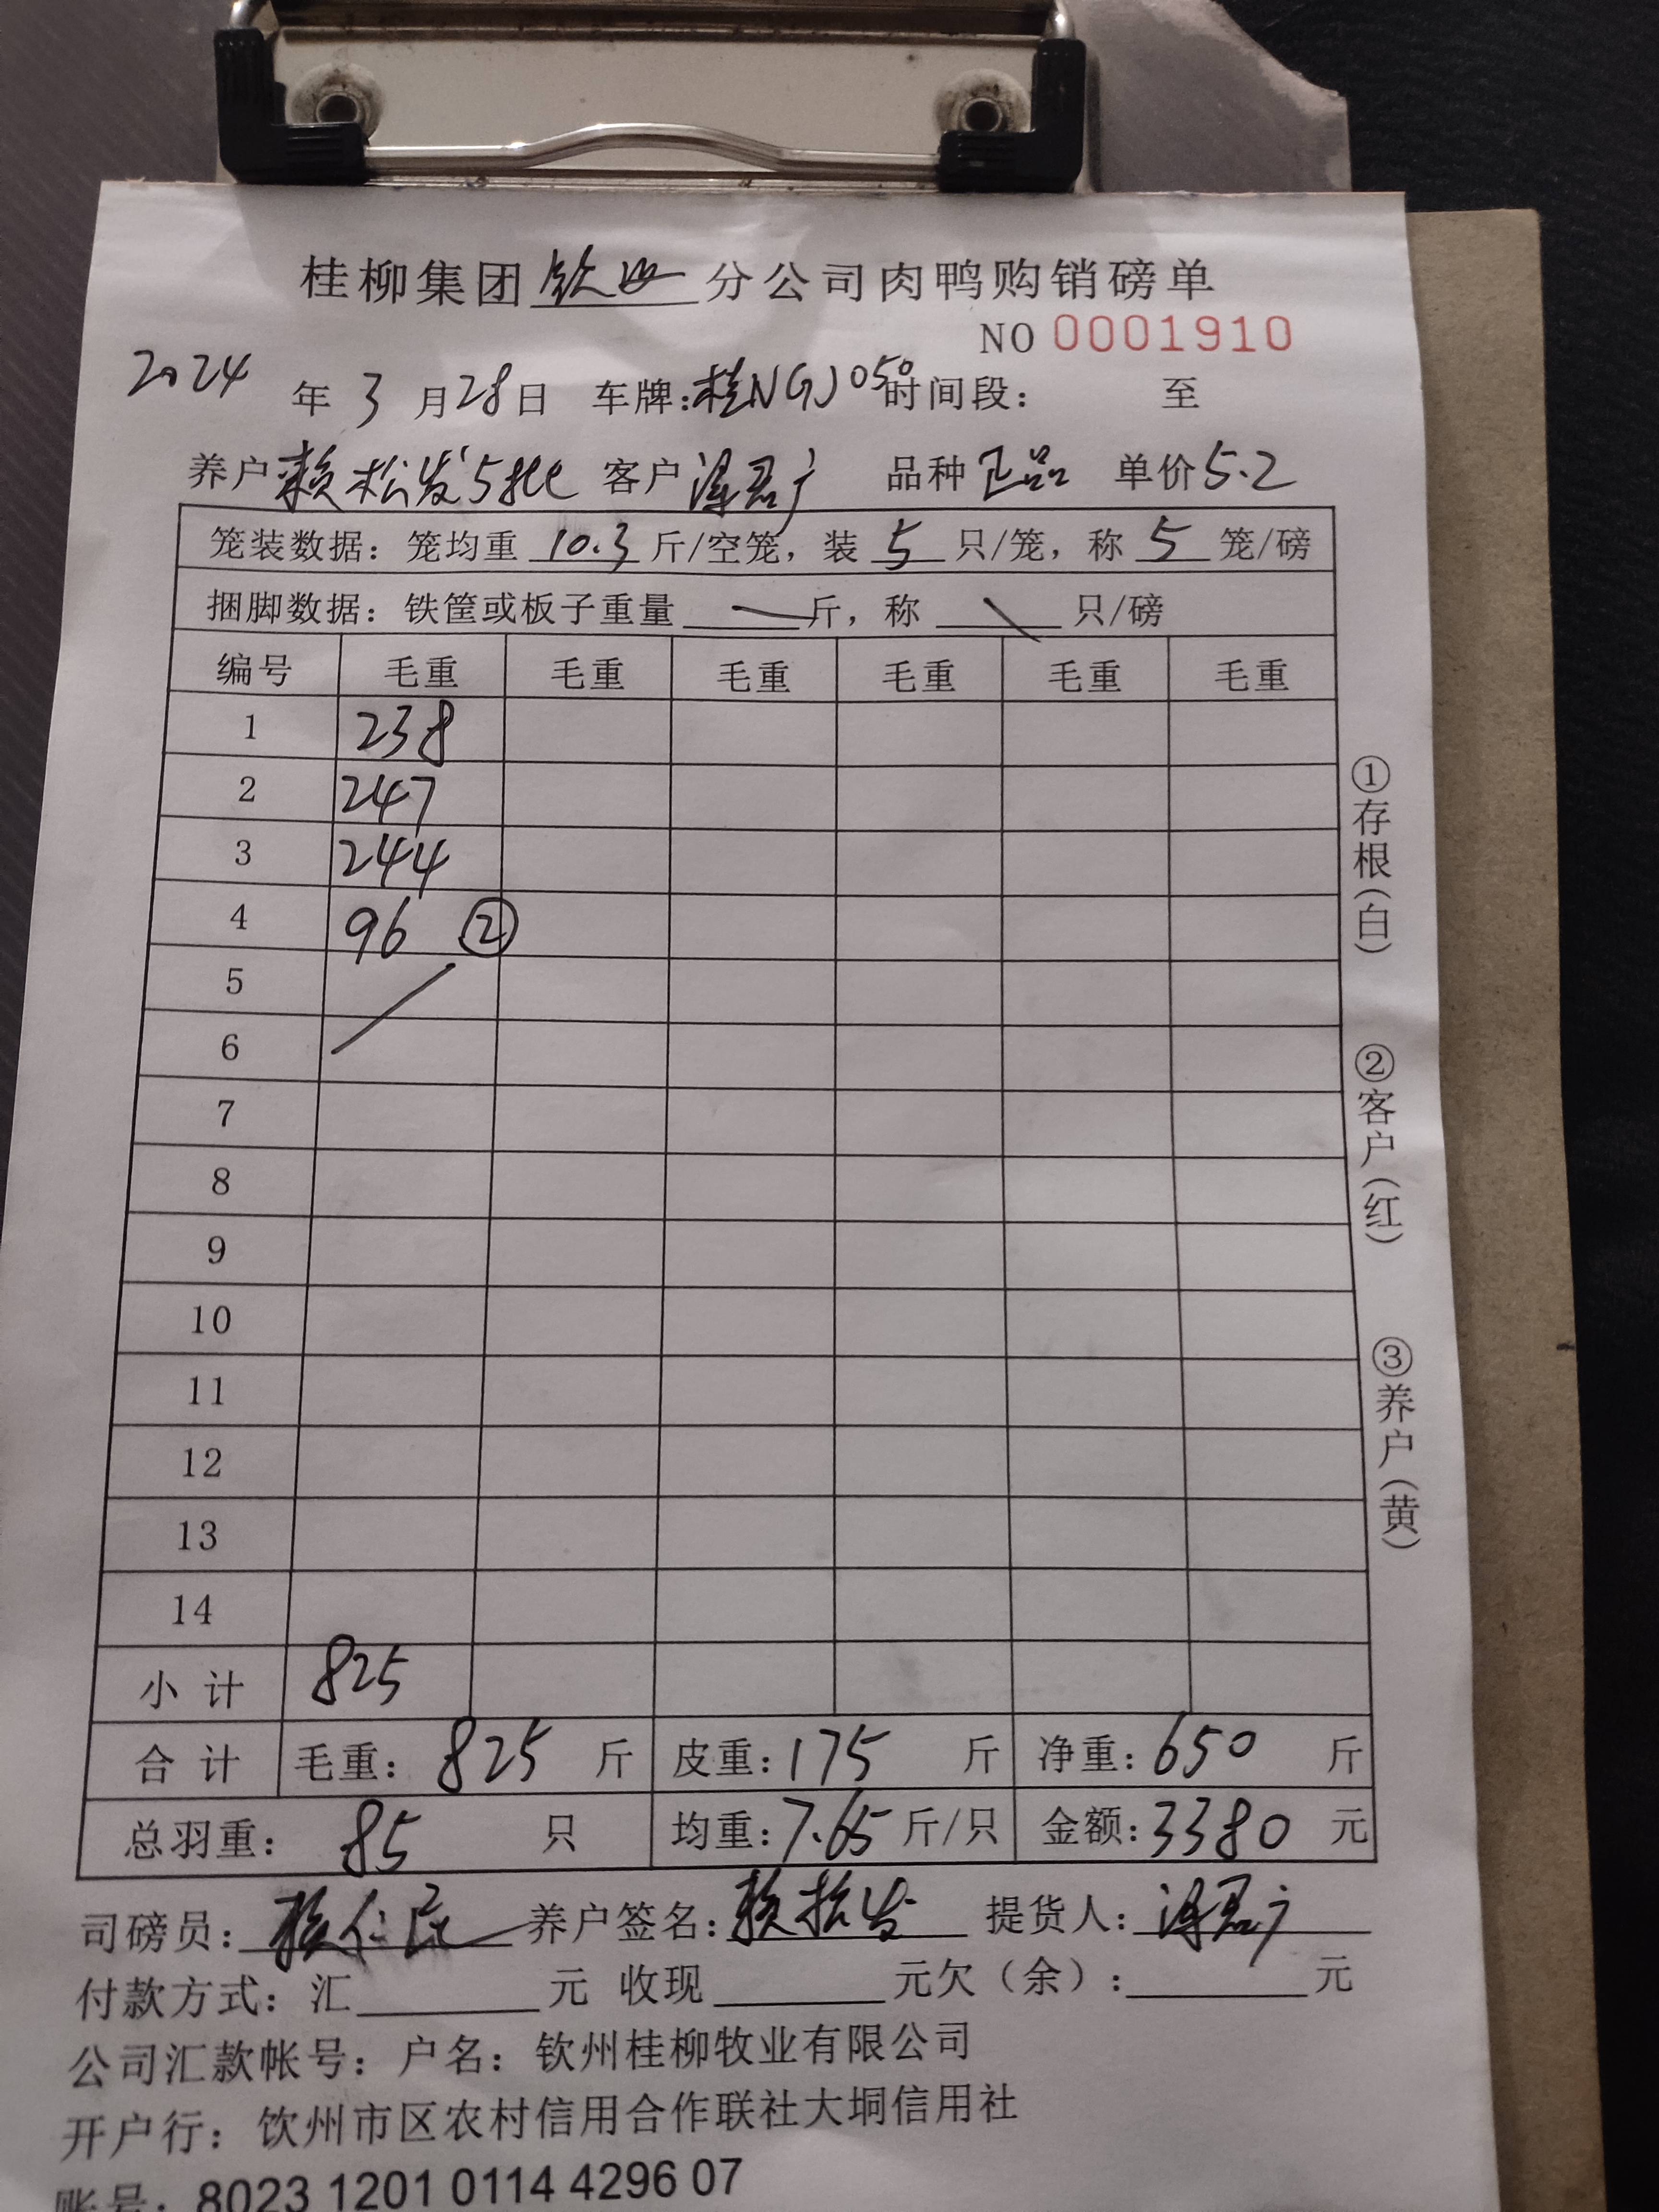 桂柳集团钦州分公司肉鸭购销磅单
NO 0001910
2024年3月28日 车牌:桂NGJ050时间段: 至
养户赖松发5批 客户 品种正品 单价5.2
笼装数据: 笼均重10.3斤/空笼, 装5只/笼, 称5笼/磅
捆脚数据: 铁筐或板子重量 斤, 称 只/磅
编号 毛重 毛重 毛重 毛重 毛重 毛重
1 238
2 247
3 244
4 96 ②
5
6
7
8
9
10
11
12
13
14
小计 825
合计 毛重: 825 斤 皮重: 175 斤 净重: 650 斤
总羽重: 85 只 均重: 7.65 斤/只 金额: 3380 元
司磅员: 养户签名: 赖松发 提货人:
付款方式: 汇 元 收现 元欠(余): 元
公司汇款帐号: 户名: 钦州桂柳牧业有限公司
开户行: 钦州市区农村信用合作联社大垌信用社
账号: 8023 1201 0114 4296 07
①存根(白)
②客户(红)
③养户(黄)